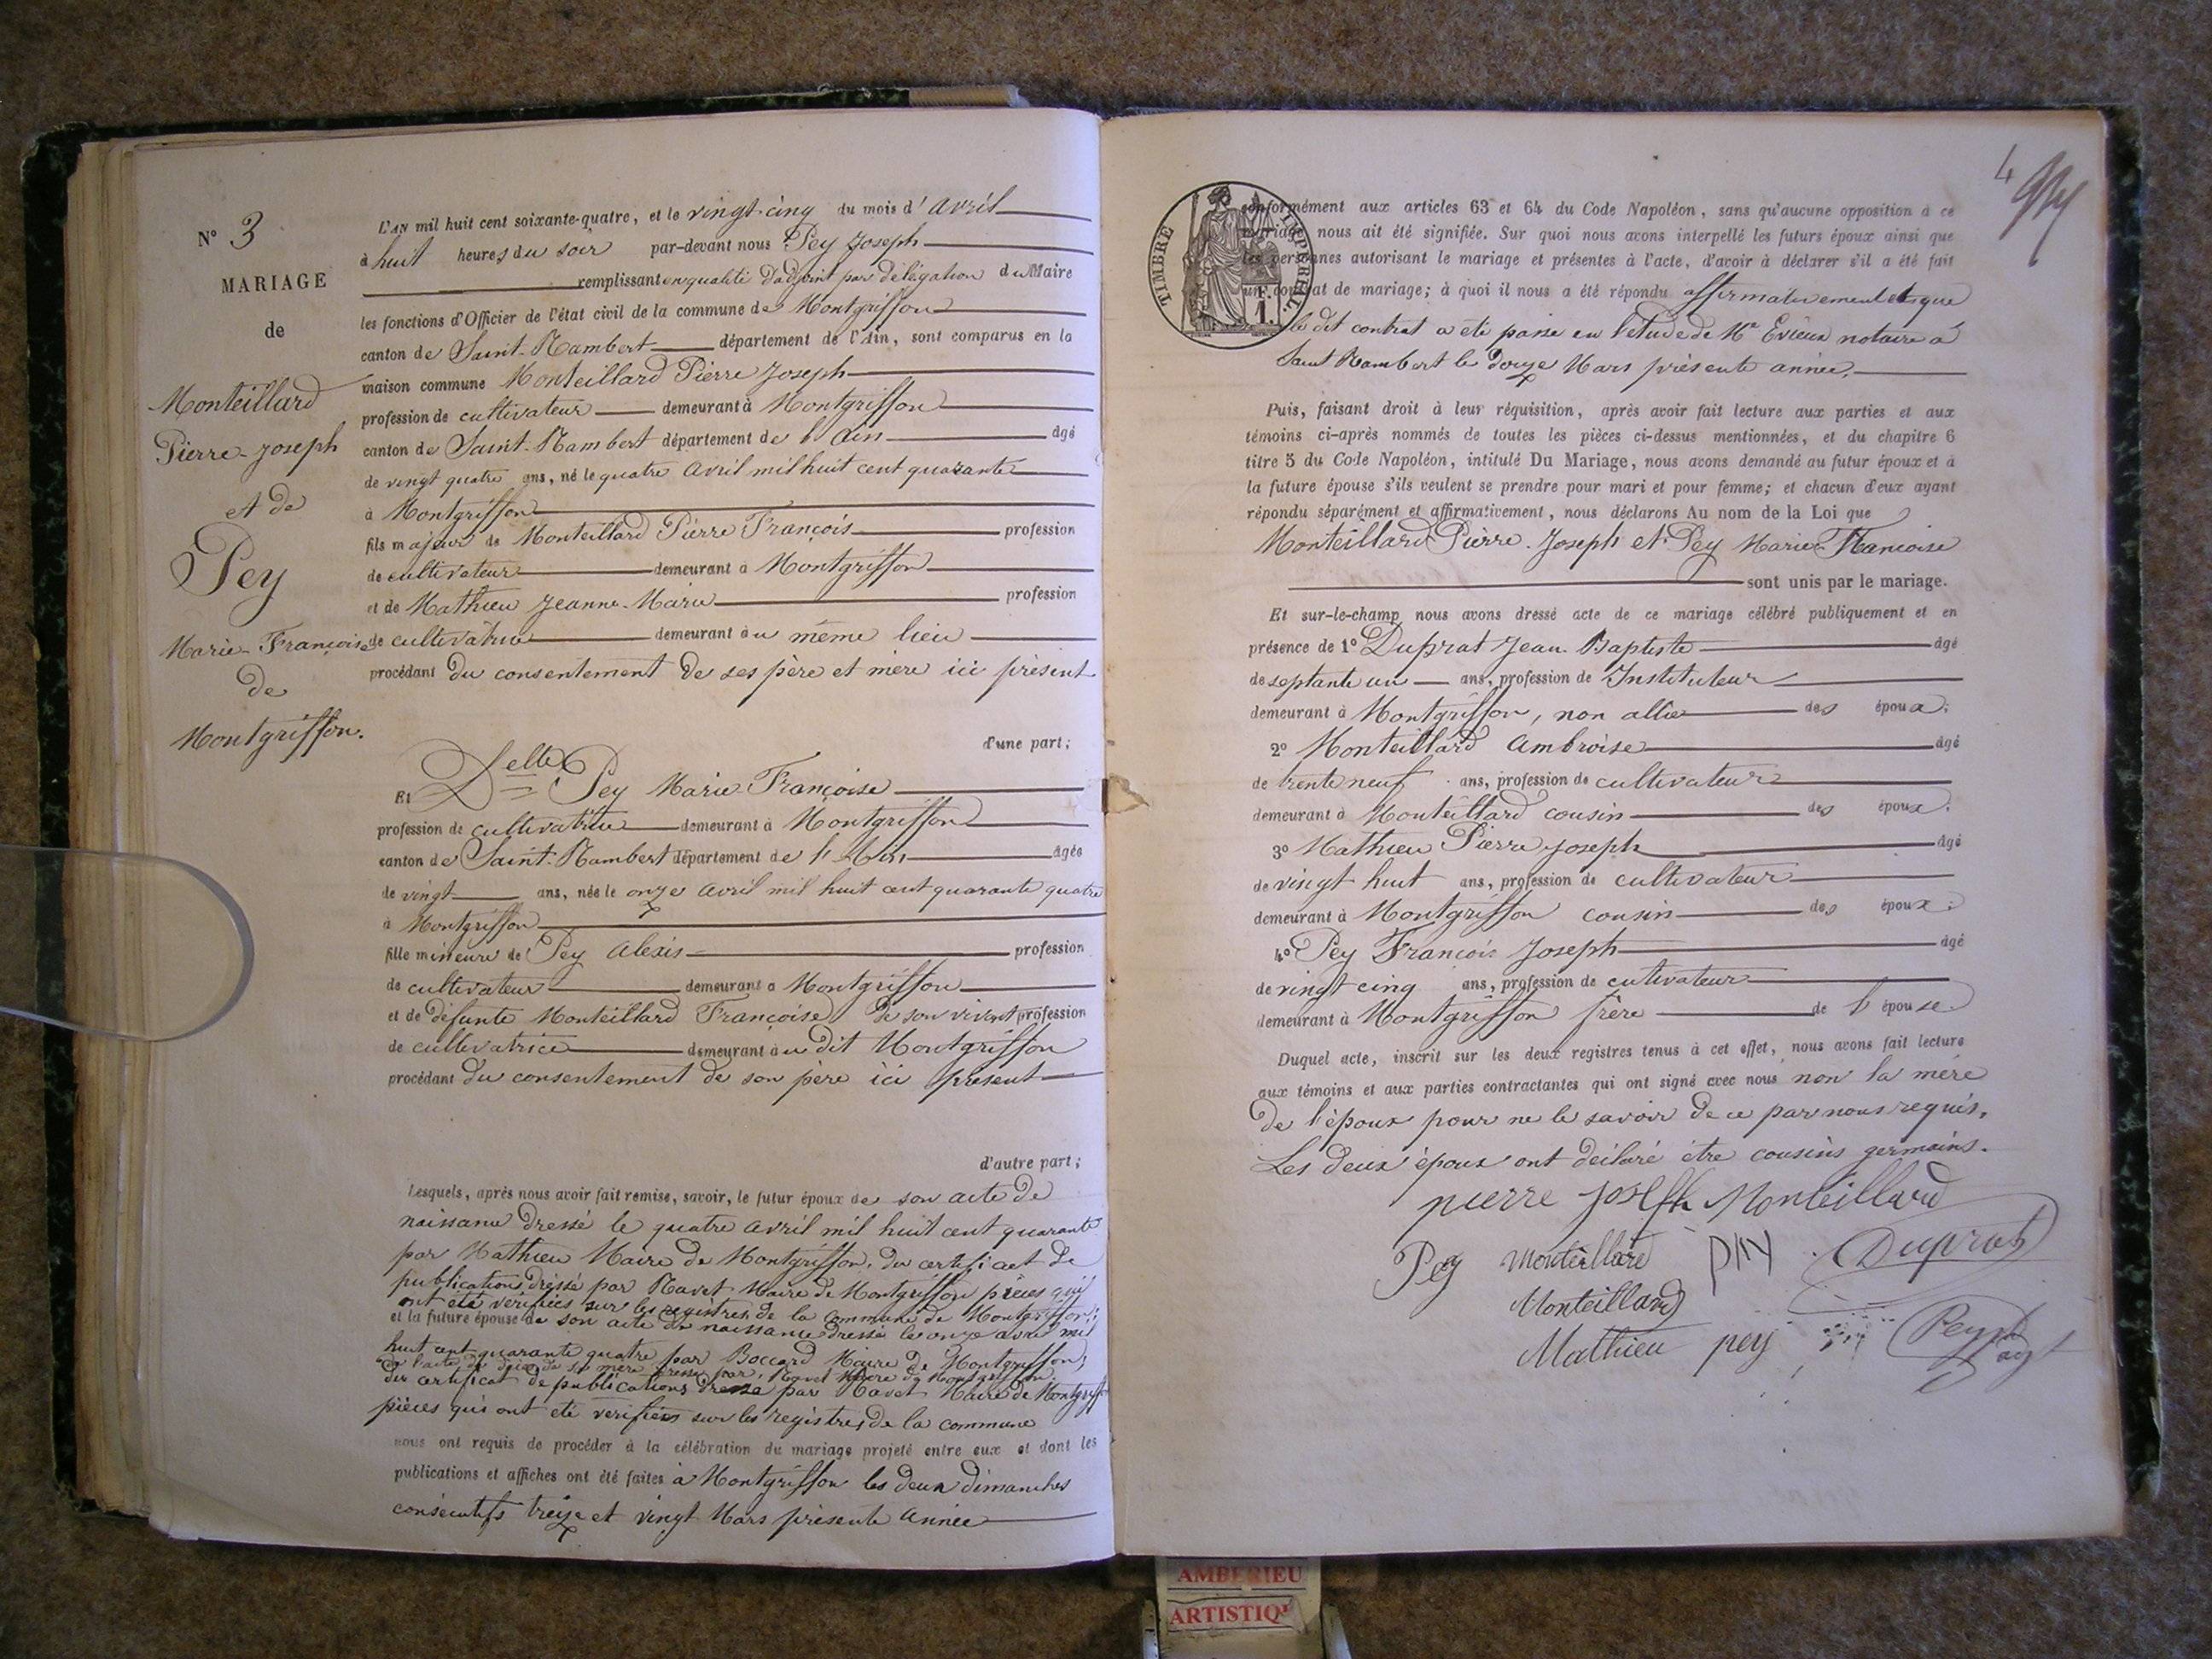 N° 3
MARIAGE
de
Monteillard
Pierre-Joseph
et de
Pey
Marie-Françoise
de
Montgriffon.
L'AN mil huit cent soixante-quatre, et le vingt-cinq du mois d'Avril
à huit heures du soir par-devant nous Pey Joseph
remplissant en qualité d'adjoint par délégation du Maire
les fonctions d'Officier de l'état civil de la commune de Montgriffon
canton de Saint-Rambert département de l'Ain, sont comparus en la
maison commune Monteillard Pierre Joseph
profession de cultivateur demeurant à Montgriffon
canton de Saint-Rambert département de l'Ain âgé
de vingt quatre ans, né le quatre Avril mil huit cent quarante
à Montgriffon
fils majeur de Monteillard Pierre François profession
de cultivateur demeurant à Montgriffon
et de Mathieu Jeanne-Marie profession
de cultivatrice demeurant au même lieu
procédant du consentement de ses père et mère ici présent
d'une part;
Et Delle Pey Marie-Françoise
profession de cultivatrice demeurant à Montgriffon
canton de Saint-Rambert département de l'Ain âgée
de vingt ans, née le onze avril mil huit cent quarante quatre
à Montgriffon
fille mineure de Pey Alexis profession
de cultivateur demeurant à Montgriffon
et de défunte Monteillard Françoise de son vivant profession
de cultivatrice demeurant au dit Montgriffon
procédant du consentement de son père ici présent
d'autre part;
Lesquels, après nous avoir fait remise, savoir, le futur époux de son acte de
naissance dressé le quatre avril mil huit cent quarante
par Mathieu Maire de Montgriffon, du certificat de
publications dressé par Ravet Maire de Montgriffon pièces qui
ont été vérifiées sur les registres de la commune de Montgriffon;
et la future épouse de son acte de naissance dressé le onze avril mil
huit cent quarante quatre par Boccard Maire de Montgriffon;
de l'acte de décès de sa mère dressé par Ravet Maire de Montgriffon.
du certificat de publications dressé par Ravet Maire de Montgriffon
pièces qui ont été vérifiées sur les registres de la commune
nous ont requis de procéder à la célébration du mariage projeté entre eux et dont les
publications et affiches ont été faites à Montgriffon les deux dimanches
consécutifs treize et vingt Mars présente année
4
TIMBRE IMPERIAL
1 F.
conformément aux articles 63 et 64 du Code Napoléon, sans qu'aucune opposition à ce
mariage nous ait été signifiée. Sur quoi nous avons interpellé les futurs époux ainsi que
les personnes autorisant le mariage et présentes à l'acte, d'avoir à déclarer s'il a été fait
un contrat de mariage; à quoi il nous a été répondu affirmativement et que
le dit contrat a été passé en l'étude de Me Evieux notaire à
Saint Rambert le douze Mars présente année.
Puis, faisant droit à leur réquisition, après avoir fait lecture aux parties et aux
témoins ci-après nommés de toutes les pièces ci-dessus mentionnées, et du chapitre 6
titre 5 du Code Napoléon, intitulé Du Mariage, nous avons demandé au futur époux et à
la future épouse s'ils veulent se prendre pour mari et pour femme; et chacun d'eux ayant
répondu séparément et affirmativement, nous déclarons Au nom de la Loi que
Monteillard Pierre-Joseph et Pey Marie-Françoise
sont unis par le mariage.
Et sur-le-champ nous avons dressé acte de ce mariage célébré publiquement et en
présence de 1° Duprat Jean-Baptiste âgé
de septante un ans, profession de Instituteur
demeurant à Montgriffon, non allié des époux;
2° Monteillard Ambroise âgé
de trente neuf ans, profession de cultivateur
demeurant à Monteillard cousin des époux;
3° Mathieu Pierre Joseph âgé
de vingt huit ans, profession de cultivateur
demeurant à Montgriffon cousin des époux;
4° Pey François Joseph âgé
de vingt cinq ans, profession de cutivateur
demeurant à Montgriffon frère de l'épouse
Duquel acte, inscrit sur les deux registres tenus à cet effet, nous avons fait lecture
aux témoins et aux parties contractantes qui ont signé avec nous non la mère
de l'époux pour ne le savoir de ce par nous requis.
Les deux époux ont déclaré être cousins germains.
pierre joseph Monteillard
Pey Monteillard pey Duprat
Monteillard
Mathieu pey Pey
AMBERIEU
ARTISTIQUE